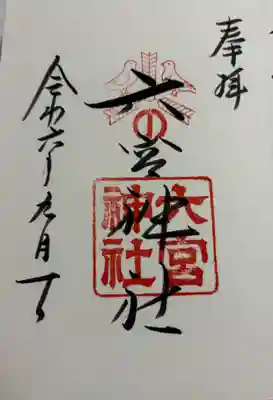 奉拝
六宮神社
六宮
神社
令和六年九月一日